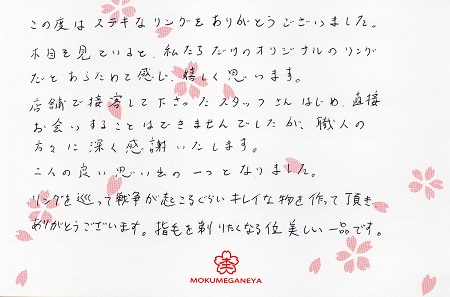 この度はステキなリングをありがとうございました。
木目を見ていると、私たちだけのオリジナルのリング
だとあらためて感じ、嬉しく思います。
店舗で接客して下さったスタッフさんはじめ、直接
お会いすることはできませんでしたが、職人の
方々に深く感謝いたします。
二人の良い思い出の一つとなりました。
リングを巡って戦争が起こるぐらいキレイな物を作って頂き
ありがとうございます。指毛を剃りたくなる位美しい一品です。
MOKUMEGANEYA